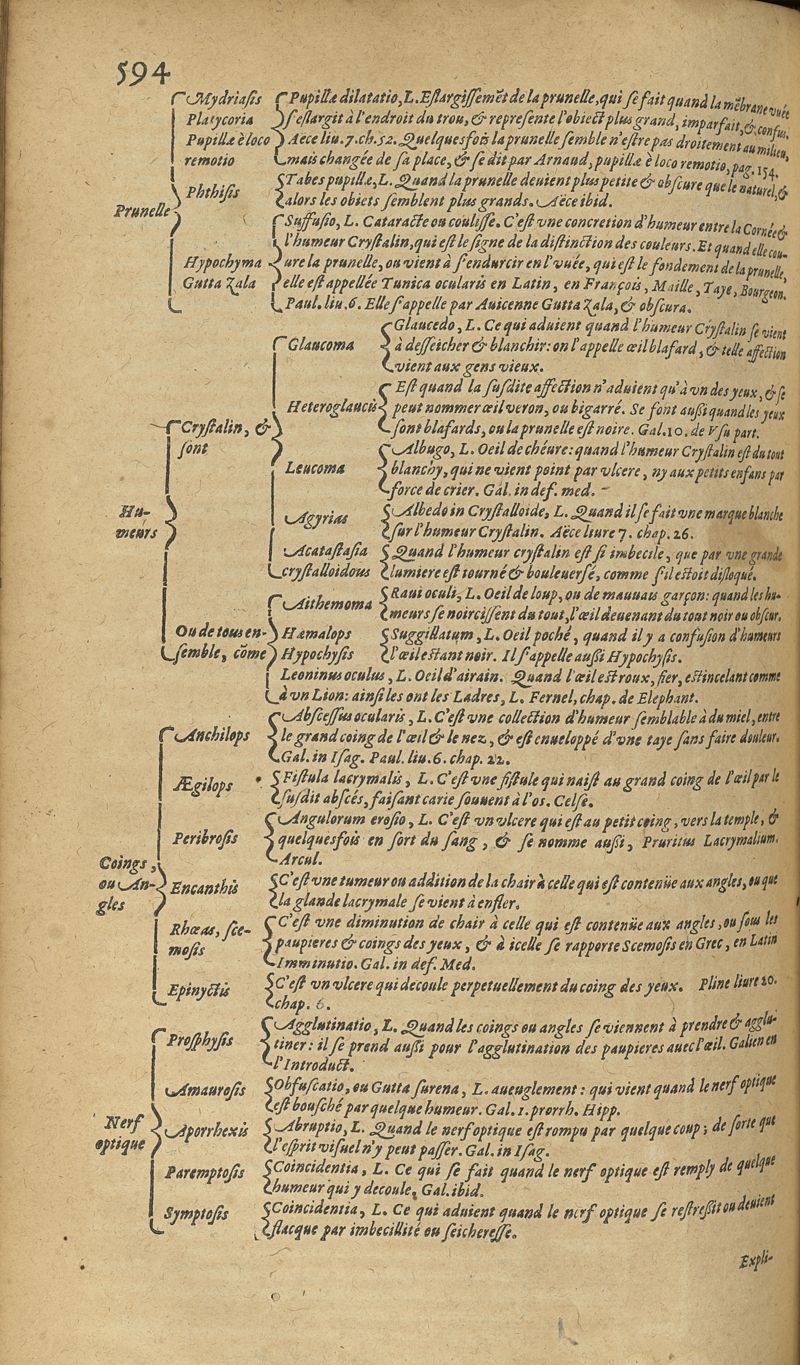 594
Mydriasis Pupillæ dilatatio, L. Eslargissemēt de la prunelle, qui se fait quand la mēbrane vuée
Platycoria s'eslargit à l'endroit du trou, & represente l'obiect plus grand, imparfait, & confus.
Pupillæ è loco Aëce liu. 7. ch. 52. Quelquesfois la prunelle semble n'estre pas droitement au milieu,
remotio mais changée de sa place, & se dit par Arnaud, pupillæ è loco remotio, pag. 154.
Phthisis Tabes pupillæ, L. Quand la prunelle deuient plus petite & obscure que le naturel, &
alors les obiets semblent plus grands. Aëce ibid.
Prunelle
Suffusio, L. Cataracte ou coulisse. C'est vne concretion d'humeur entre la Cornée &
l'humeur Crystalin, qui est le signe de la distinction des couleurs. Et quand elle cou-
Hypochyma ure la prunelle, ou vient à s'endurcir en l'vuée, qui est le fondement de la prunelle,
Gutta Zala elle est appellée Tunica ocularis en Latin, en François, Maille, Taye, Bourgeon.
Paul. liu. 6. Elle s'appelle par Auicenne Gutta Zala, & obscura.
Glaucedo, L. Ce qui aduient quand l'humeur Crystalin se vient
Glaucoma à desseicher & blanchir: on l'appelle œil blafard, & telle affection
vient aux gens vieux.
Est quand la susdite affection n'aduient qu'à vn des yeux, & se
Heteroglaucis peut nommer œil veron, ou bigarré. Se font außi quand les yeux
sont blafards, ou la prunelle est noire. Gal. 10. de Vsu part.
Crystalin, &
sont
Albugo, L. Oeil de chéure: quand l'humeur Crystalin est du tout
Leucoma blanchy, qui ne vient point par vlcere, ny aux petits enfans par
force de crier. Gal. in def. med.
Hu-
meurs
Agyrias Albedo in Crystalloide, L. Quand il se fait vne marque blanche
sur l'humeur Crystalin. Aëce liure 7. chap. 26.
Acatastasia Quand l'humeur crystalin est si imbecile, que par vne grande
crystalloidous lumiere est tourné & bouleuersé, comme s'il estoit disloqué.
Aithemoma Raui oculi, L. Oeil de loup, ou de mauuais garçon: quand les hu-
meurs se noircissent du tout, l'œil deuenant du tout noir ou obscur.
Ou de tous en- Hæmalops Suggillatum, L. Oeil poché, quand il y a confusion d'humeurs
semble, cōme Hypochysis l'œil estant noir. Il s'appelle außi Hypochysis.
Leoninus oculus, L. Oeil d'airain. Quand l'œil est roux, fier, estincelant comme
à vn Lion: ainsi les ont les Ladres, L. Fernel, chap. de Elephant.
Abscessus ocularis, L. C'est vne collection d'humeur semblable à du miel, entre
Anchilops le grand coing de l'œil & le nez, & est enueloppé d'vne taye sans faire douleur.
Gal. in Isag. Paul. liu. 6. chap. 22.
Ægilops Fistula lacrymalis, L. C'est vne fistule qui naist au grand coing de l'œil par le
susdit abscés, faisant carie souuent à l'os. Celse.
Angulorum erosio, L. C'est vn vlcere qui est au petit coing, vers la temple, &
Peribrosis quelquesfois en sort du sang, & se nomme außi, Pruritus Lacrymalium.
Arcul.
Coings,
ou An-
gles
Encanthis C'est vne tumeur ou addition de la chair à celle qui est contenüe aux angles, ou que
la glande lacrymale se vient à enfler.
Rhœas, sce- C'est vne diminution de chair à celle qui est contenüe aux angles, ou sous les
mosis paupieres & coings des yeux, & à icelle se rapporte Scemosis en Grec, en Latin
Imminutio. Gal. in def. Med.
Epinyctis C'est vn vlcere qui decoule perpetuellement du coing des yeux. Pline liure 20.
chap. 6.
Agglutinatio, L. Quand les coings ou angles se viennent à prendre & agglu-
Prosphysis tiner: il se prend aussi pour l'agglutination des paupieres auec l'œil. Galien en
l'Introduct.
Amaurosis Obfuscatio, ou Gutta surena, L. aueuglement: qui vient quand le nerf optique
est bousché par quelque humeur. Gal. 1. prorrh. Hipp.
Nerf
optique
Aporrhexis Abruptio, L. Quand le nerf optique est rompu par quelque coup; de sorte que
l'esprit visuel n'y peut passer. Gal. in Isag.
Paremptosis Coincidentia, L. Ce qui se fait quand le nerf optique est remply de quelque
humeur qui y decoule, Gal. ibid.
Symptosis Coincidentia, L. Ce qui aduient quand le nerf optique se restressit ou deuient
flacque par imbecillité ou seicheresse.
Expli-